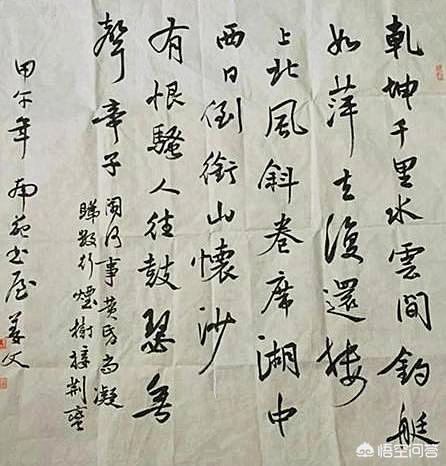 乾坤千里水雲間釣艇
如萍去復還樓
上北風斜卷席湖中
西日倒銜山懷沙
有恨騷人往鼓瑟無
聲帝子
閑何事黃昏尚凝
睇數行煙樹接荊蠻
甲午年南苑書屋
悟空问答